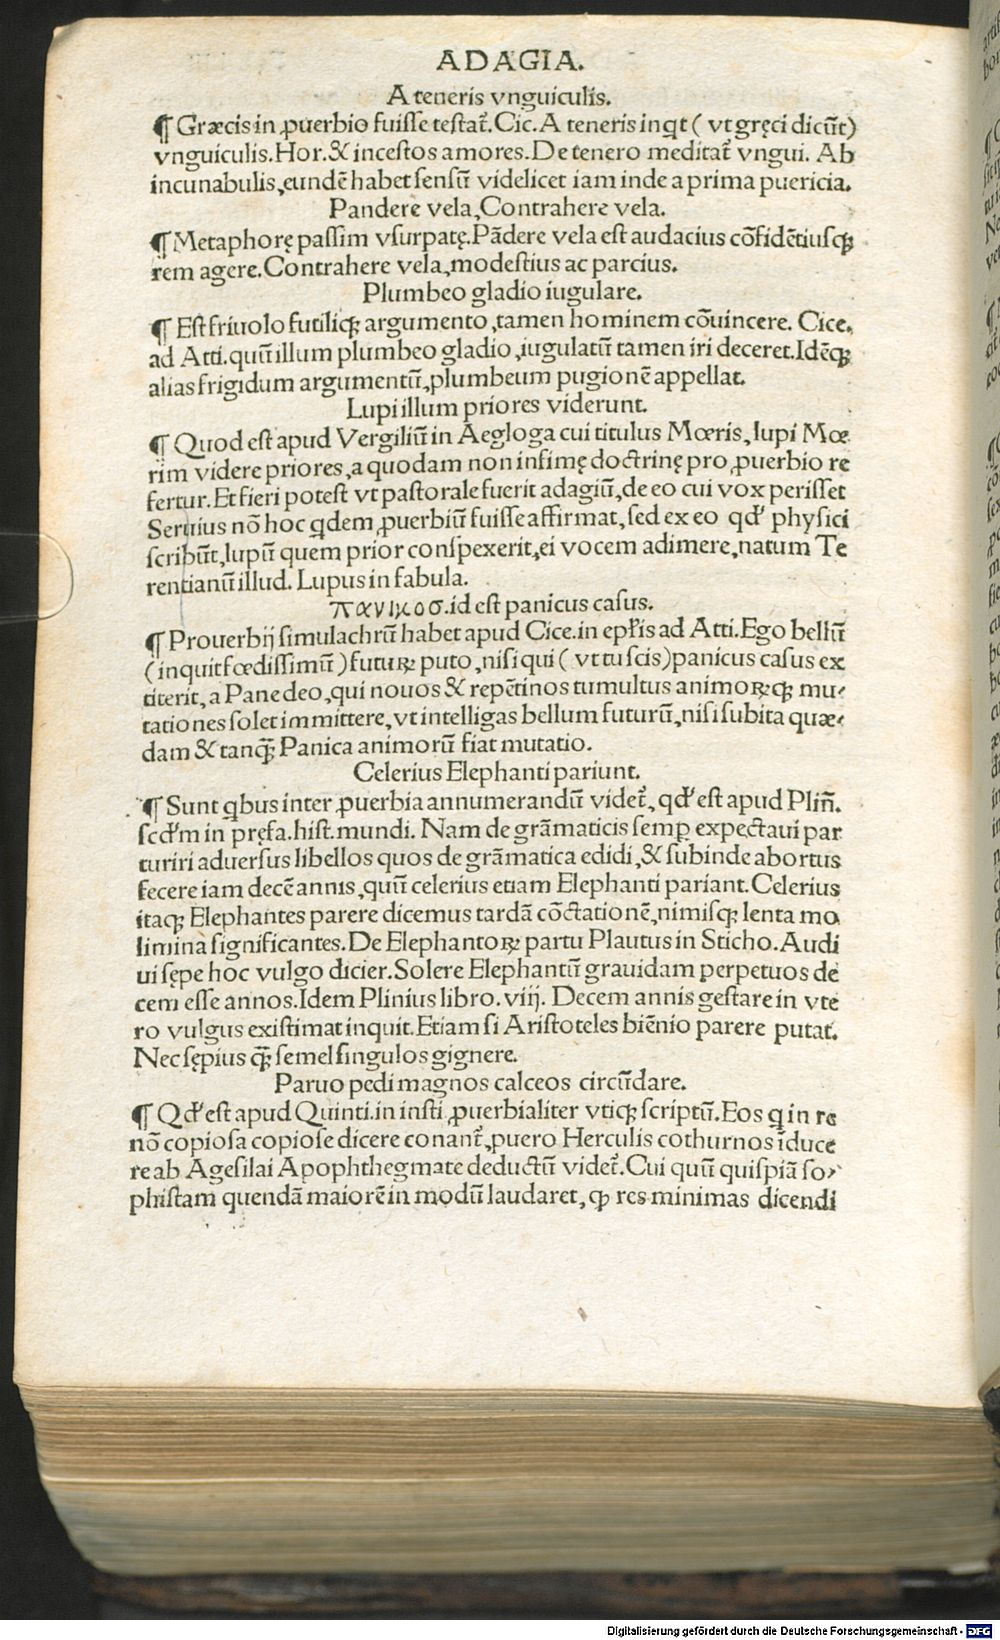 ADAGIA.
A teneris vnguiculis.
¶ Græcis in ꝓuerbio fuiſſe teſtat᷑. Cic. A teneris inqͥt ( vt gręci dicūt)
vnguiculis. Hor. & inceſtos amores. De tenero meditat᷑ vngui. Ab
incunabulis, eundē habet ſenſū videlicet iam inde a prima puericia.
Pandere vela, Contrahere vela.
¶ Metaphorę paſſim vſurpatę. Pādere vela eſt audacius cōfidētiusqꝫ
rem agere. Contrahere vela, modeſtius ac parcius.
Plumbeo gladio iugulare.
¶ Eſt friuolo futiliqꝫ argumento, tamen hominem cōuincere. Cice.
ad Atti. quū illum plumbeo gladio, iugulatū tamen iri deceret. Idēqꝫ
alias frigidum argumentū, plumbeum pugionē appellat.
Lupi illum priores viderunt.
¶ Quod eſt apud Vergiliū in Aegloga cui titulus Mœris, lupi Mœ
rim videre priores, a quodam non infimę doctrinę pro ꝓuerbio re
fertur. Et fieri poteſt vt paſtorale fuerit adagiū, de eo cui vox periſſet
Seruius nō hoc qͥdem ꝓuerbiū fuiſſe affirmat, ſed ex eo qđ phyſici
ſcribūt, lupū quem prior conſpexerit, ei vocem adimere, natum Te
rentianū illud. Lupus in fabula.
πανικοσ. id eſt panicus caſus.
¶ Prouerbij ſimulachrū habet apud Cice. in epłis ad Atti. Ego bellū
(inquit fœdiſſimū) futuꝝ puto, niſi qui ( vt tu ſcis) panicus caſus ex
titerit, a Pane deo, qui nouos & repētinos tumultus animoꝝqꝫ mu-
tationes ſolet immittere, vt intelligas bellum futurū, niſi ſubita quæ-
dam & tanqꝫ̄ Panica animorū fiat mutatio.
Celerius Elephanti pariunt.
¶ Sunt qͥbus inter ꝓuerbia annumerandū videt᷑, qđ eſt apud Plin̄.
ſcđm in pręfa. hiſt. mundi. Nam de grāmaticis ſemꝑ expectaui par
turiri aduerſus libellos quos de grāmatica edidi, & ſubinde abortus
fecere iam decē annis, quū celerius etiam Elephanti pariant. Celerius
itaqꝫ Elephantes parere dicemus tardā cōctationē, nimiſqꝫ lenta mo
limina ſignificantes. De Elephantoꝝ partu Plautus in Sticho. Audi
ui ſępe hoc vulgo dicier. Solere Elephantū grauidam perpetuos de
cem eſſe annos. Idem Plinius libro. viij. Decem annis geſtare in vte
ro vulgus exiſtimat inquit. Etiam ſi Ariſtoteles biēnio parere putat.
Nec ſępius qꝫ̄ ſemel ſingulos gignere.
Paruo pedi magnos calceos circūdare.
¶ Qđ eſt apud Quinti. in inſti ꝓuerbialiter vtiqꝫ ſcriptū. Eos qͥ in re
nō copioſa copioſe dicere conant᷑, puero Herculis cothurnos īduce
re ab Ageſilai Apophthegmate deductū videt᷑. Cui quū quiſpiā ſo-
phiſtam quendā maiorē in modū laudaret, ꝙ res minimas dicendi
Digitalisierung gefördert durch die Deutsche Forschungsgemeinschaft - DFG